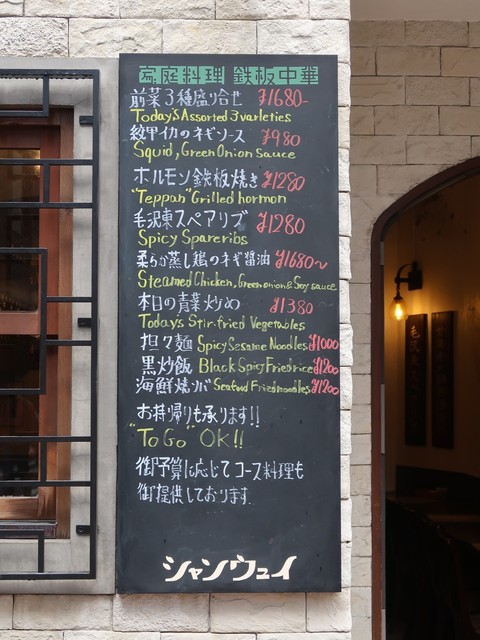 家庭料理 鉄板中華
前菜3種盛り合せ ¥1680-
Today's Assorted 3 varieties
紋甲イカのネギソース ¥980
Squid, Green Onion sauce
ホルモン鉄板焼き ¥1280
"Teppan" Grilled hormon
毛沢東スペアリブ ¥1280
Spicy Spareribs
柔らか蒸し鶏のネギ醤油 ¥1680~
Steamed Chicken, Green onion & Soy sauce
本日の青菜炒め ¥1380
Today's Stir-fried Vegetables
担々麺 Spicy Sesame Noodles ¥1000
黒炒飯 Black Spicy Fried rice ¥1200
海鮮焼ソバ Seafood Fried noodles ¥1200
お持帰りも承ります!!
"To Go" OK!!
御予算に応じてコース料理も
御提供しております
シャンウェイ